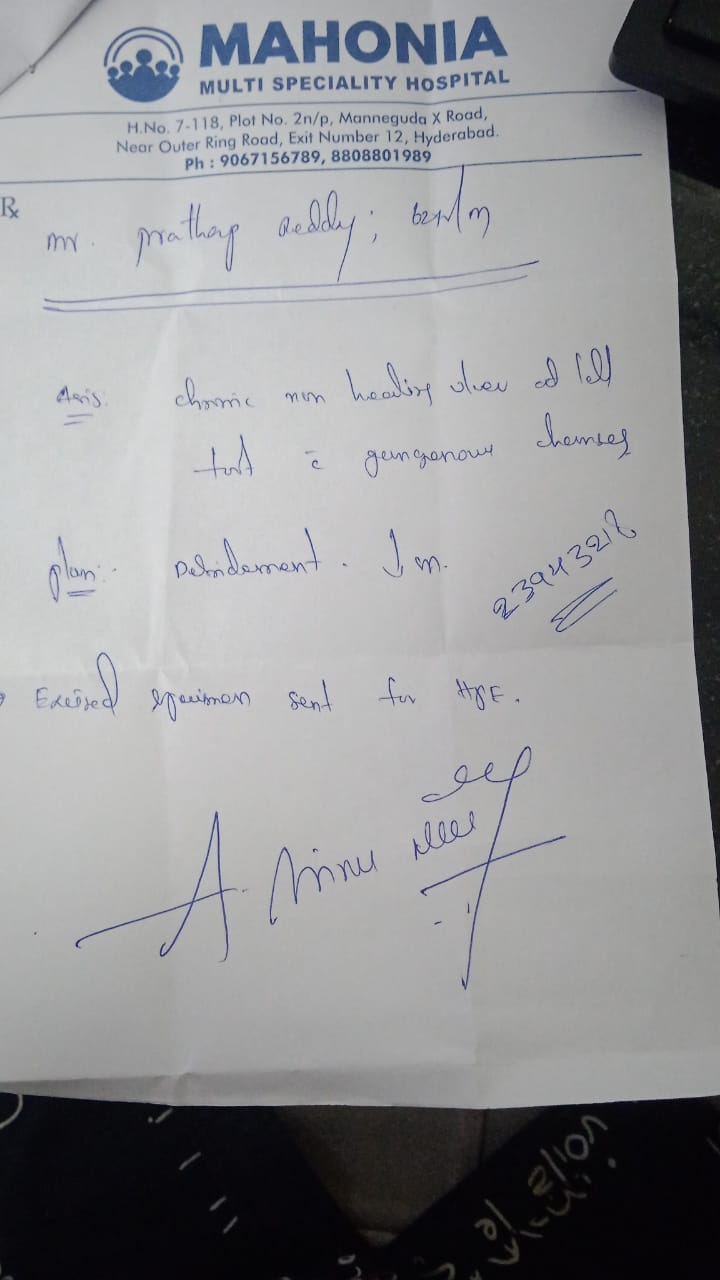 MAHONIA
MULTI SPECIALITY HOSPITAL
H.No. 7-118, Plot No. 2n/p, Manneguda X Road,
Near Outer Ring Road, Exit Number 12, Hyderabad.
Ph : 9067156789, 8808801989
℞
mr. prathap Reddy;
chronic non healing ulcer
foot c̄ gangenous
plan:- Debridement.
23943218
Excised specimen sent for HPE.
A.